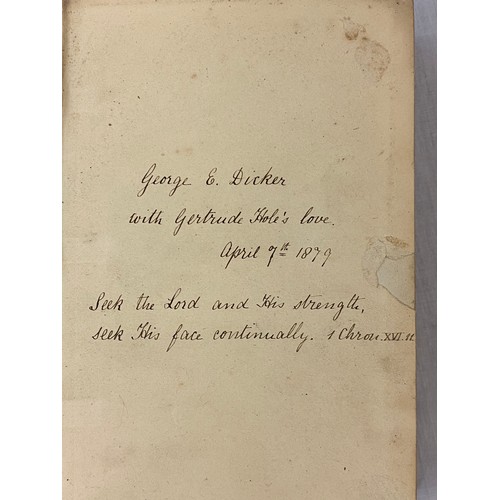 George E. Dicker
with Gertrude Hole's love.
April 7th 1879
Seek the Lord and His strength,
seek His face continually. 1 Chron. XVI. 11